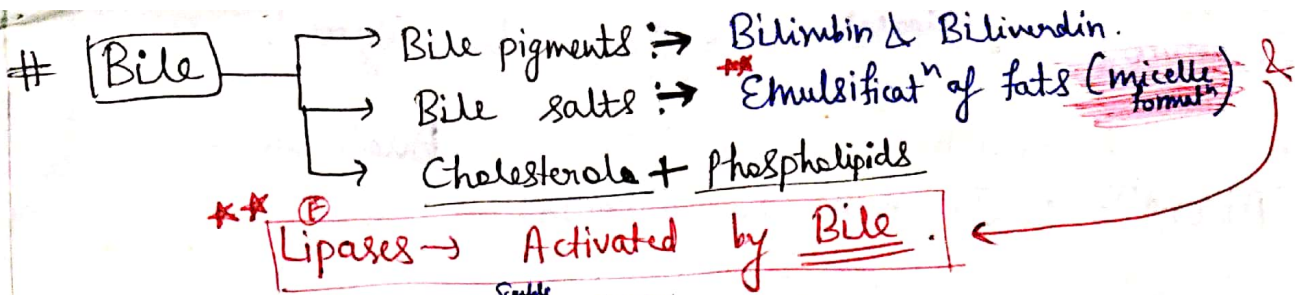 # Bile → Bile pigments :→ Bilirubin & Biliverdin.
→ Bile salts :→ ** Emulsificatⁿ of fats (micelle formatⁿ) &
→ Cholesterole + Phospholipids
** Ⓕ
Lipases → Activated by Bile.